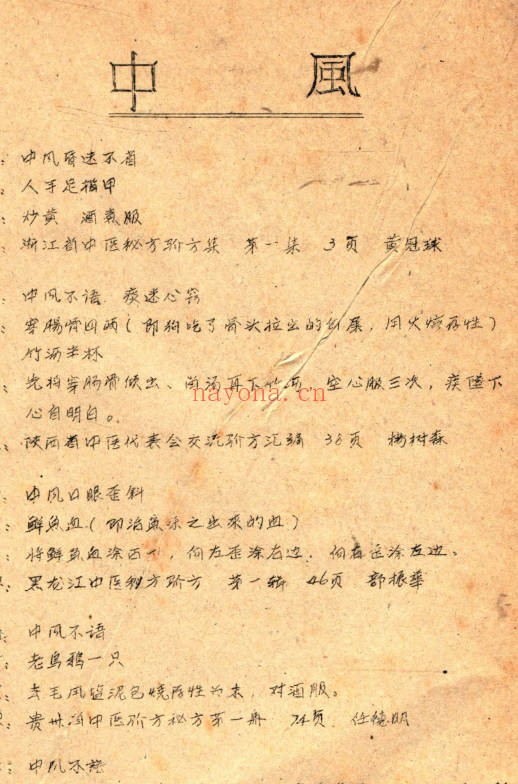 中風
中风昏迷不省
人手足指甲
炒黄 酒煮服
浙江省中医秘方验方集 第一集 3页 黄冠球
中风不语、痰迷心窍
穿肠骨四两(即狗吃了骨头拉出的 用火烧存性)
竹沥半杯
先将穿肠骨 空心服三次,痰
心自明白。
nayona.cn
陕西省中医代表会交流验方汇编 38页 杨树森
中风口眼歪斜
鲜鱼血(即治鱼 出来的血)
将鲜鱼血涂 向左歪涂右边、向右歪涂左边。
黑龙江中医秘方验方 第一辑 46页 郭振华
中风不语
老乌鸦一只
去毛 泥包烧存性为末,对酒服。
贵州省中医验方秘方第一册 74页 任德明
中风不语